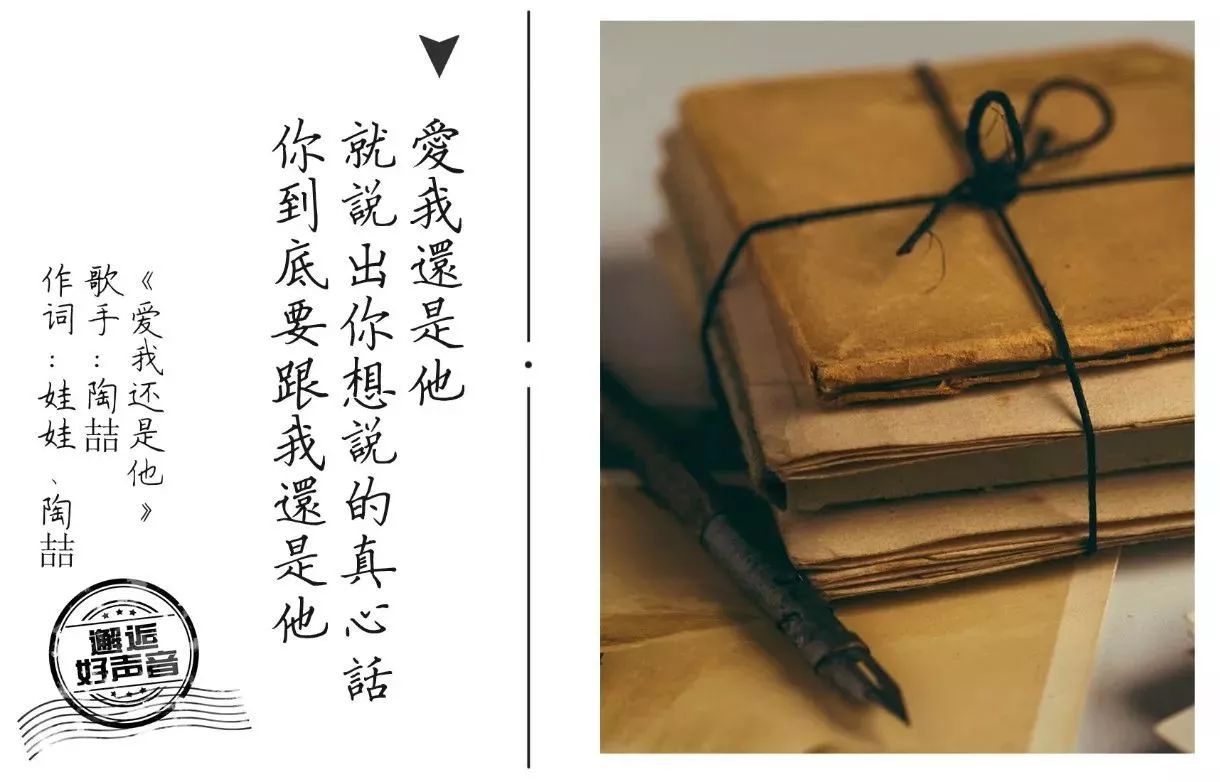 愛我還是他
就說出你想說的真心話
你到底要跟我還是他
《爱我还是他》
歌手：陶喆
作词：娃娃、陶喆
邂逅
好声音